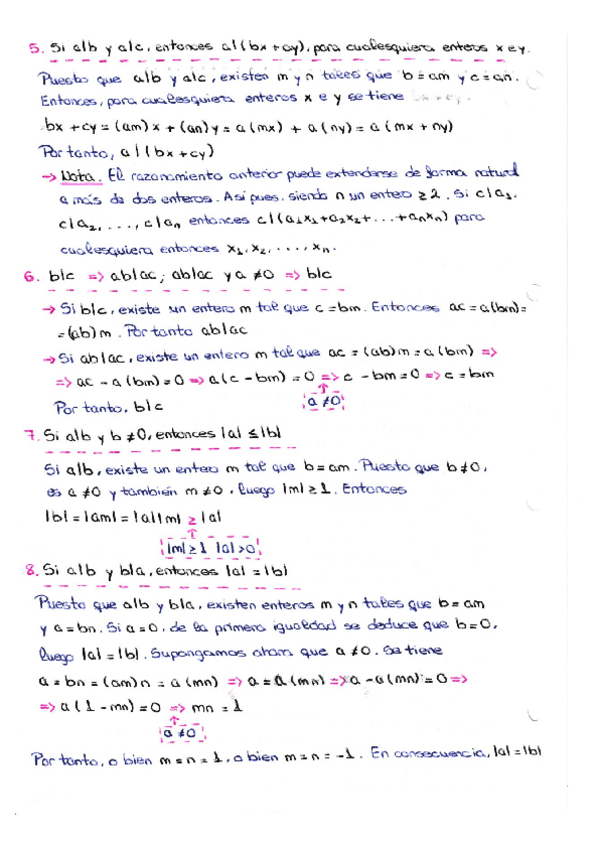 5. Si a|b y a|c, entonces a|(bx + cy), para cualesquiera enteros x e y.
Puesto que a|b y a|c, existen m y n tales que b = am y c = an.
Entonces, para cualesquiera enteros x e y se tiene bx + cy.
bx + cy = (am)x + (an)y = a(mx) + a(ny) = a(mx + ny)
Por tanto, a|(bx + cy)
→ Nota. El razonamiento anterior puede extenderse de forma natural
a más de dos enteros. Así pues, siendo n un entero ≥ 2. Si c|a₁,
c|a₂, ..., c|aₙ entonces c|(a₁x₁+a₂x₂+...+aₙxₙ) para
cualesquiera entonces x₁, x₂, ..., xₙ.
6. b|c => ab|ac; ab|ac y a ≠ 0 => b|c
→ Si b|c, existe un entero m tal que c = bm. Entonces ac = a(bm) =
= (ab)m. Por tanto ab|ac
→ Si ab|ac, existe un entero m tal que ac = (ab)m = a(bm) =>
=> ac - a(bm) = 0 => a(c - bm) = 0 => c - bm = 0 => c = bm
Por tanto, b|c
a ≠ 0
7. Si a|b y b ≠ 0, entonces |a| ≤ |b|
Si a|b, existe un entero m tal que b = am. Puesto que b ≠ 0,
es a ≠ 0 y también m ≠ 0, luego |m| ≥ 1. Entonces
|b| = |am| = |a||m| ≥ |a|
|m| ≥ 1 |a| > 0
8. Si a|b y b|a, entonces |a| = |b|
Puesto que a|b y b|a, existen enteros m y n tales que b = am
y a = bn. Si a = 0, de la primera igualdad se deduce que b = 0,
luego |a| = |b|. Supongamos ahora que a ≠ 0. Se tiene
a = bn = (am)n = a(mn) => a = a(mn) => a - a(mn) = 0 =>
=> a(1 - mn) = 0 => mn = 1
a ≠ 0
Por tanto, o bien m = n = 1, o bien m = n = -1. En consecuencia, |a| = |b|